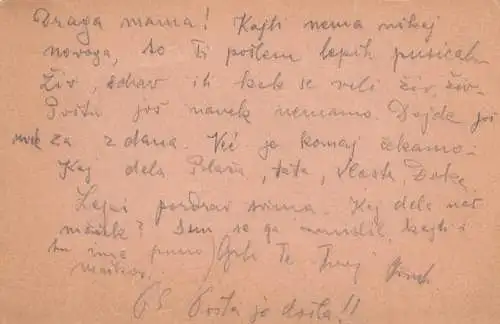 Draga mama! Kajti nema nikej
novoga, to Ti pošlem lepih pusicah
Živ, zdrav ili kak se veli živ, živ.
Poštu još navek nemamo. Dojde još
za z dana. Već je komaj čekamo.
Kaj dela, tata, Vlasta,
Lepi pozdrav svima. Kaj dela naš
? Sem se ga, kajti i
tu ima puno Grli Te Tvoj
mačkov.
PS Pošta je došla!!